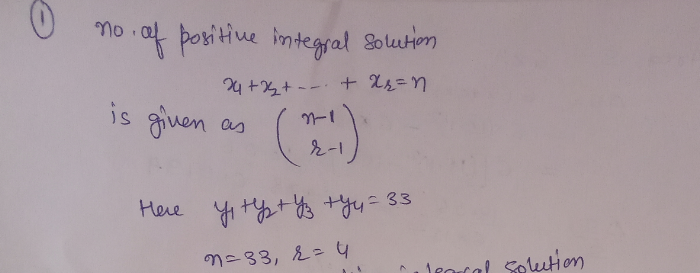 ① no. of positive integral solution
x₁+x₂+ ---- + xᵣ=n
is given as (n-1
r-1)
Here y₁+y₂+y₃+y₄=33
n=33, r=4
integral solution